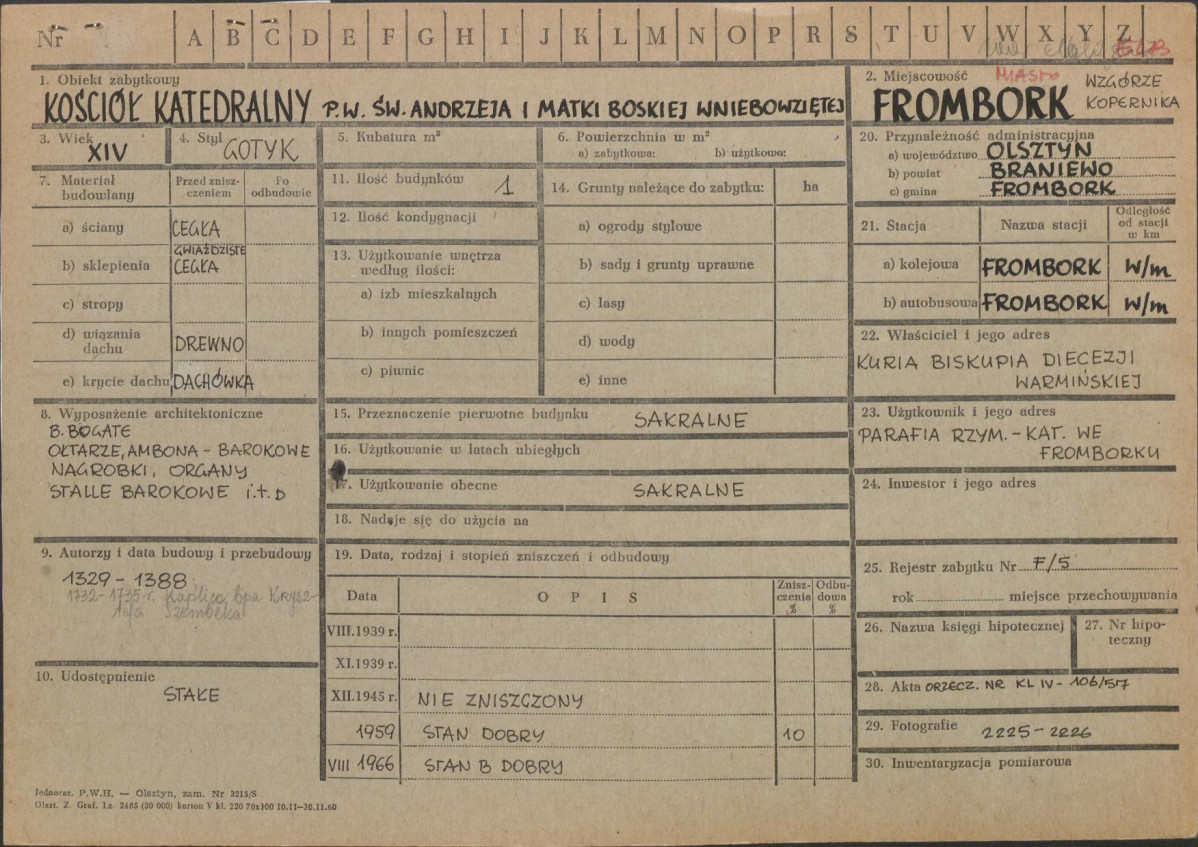 Nr A B C D E F G H I J K L M N O P R S T U V W X Y Z
1. Obiekt zabytkowy
KOŚCIÓŁ KATEDRALNY P.W. ŚW. ANDRZEJA I MATKI BOSKIEJ WNIEBOWZIĘTEJ
2. Miejscowość MIASTO WZGÓRZE
FROMBORK KOPERNIKA
3. Wiek
XIV
4. Styl GOTYK
5. Kubatura m³
6. Powierzchnia w m²
a) zabytkowa: b) użytkowa:
7. Materiał budowlany
Przed znisz-
czeniem
Po
odbudowie
a) ściany CEGŁA
GWIAŹDZISTE
b) sklepienia CEGŁA
c) stropy
d) wiązania
dachu DREWNO
e) krycie dachu DACHÓWKA
8. Wyposażenie architektoniczne
B. BOGATE
OŁTARZE, AMBONA - BAROKOWE
NAGROBKI, ORGANY
STALLE BAROKOWE i.t.D
9. Autorzy i data budowy i przebudowy
1329 - 1388
1732-1735 r. Kaplica bpa Krysz-
tofa Szembeka
10. Udostępnienie
STAŁE
11. Ilość budynków 1
12. Ilość kondygnacji
13. Użytkowanie wnętrza
według ilości:
a) izb mieszkalnych
b) innych pomieszczeń
c) piwnic
14. Grunty należące do zabytku: ha
a) ogrody stylowe
b) sady i grunty uprawne
c) lasy
d) wody
e) inne
15. Przeznaczenie pierwotne budynku SAKRALNE
16. Użytkowanie w latach ubiegłych
17. Użytkowanie obecne SAKRALNE
18. Nadaje się do użycia na
19. Data, rodzaj i stopień zniszczeń i odbudowy
Data OPIS
Znisz-
czenia
%
Odbu-
dowa
%
VIII.1939 r.
XI.1939 r.
XII.1945 r. NIE ZNISZCZONY
1959 STAN DOBRY 10
VIII 1966 STAN B DOBRY
20. Przynależność administracyjna
a) województwo OLSZTYN
b) powiat BRANIEWO
c) gmina FROMBORK
21. Stacja Nazwa stacji
Odległość
od stacji
w km
a) kolejowa FROMBORK W/m
b) autobusowa FROMBORK W/m
22. Właściciel i jego adres
KURIA BISKUPIA DIECEZJI
WARMIŃSKIEJ
23. Użytkownik i jego adres
PARAFIA RZYM. - KAT. WE
FROMBORKU
24. Inwestor i jego adres
25. Rejestr zabytku Nr F/5
rok miejsce przechowywania
26. Nazwa księgi hipotecznej
27. Nr hipo-
teczny
28. Akta ORZECZ. NR KL IV - 106/57
29. Fotografie 2225 - 2226
30. Inwentaryzacja pomiarowa
Jednoraz. P.W.H. — Olsztyn, zam. Nr 3215/S
Olszt. Z. Graf. Lz. 2485 (30 000) karton V kl. 220 70x100 10.11—30.11.60